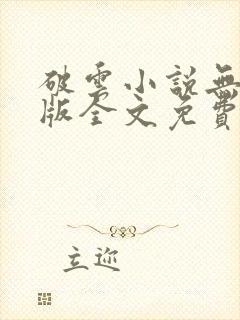 破雲小說無
版全文免費
立迩